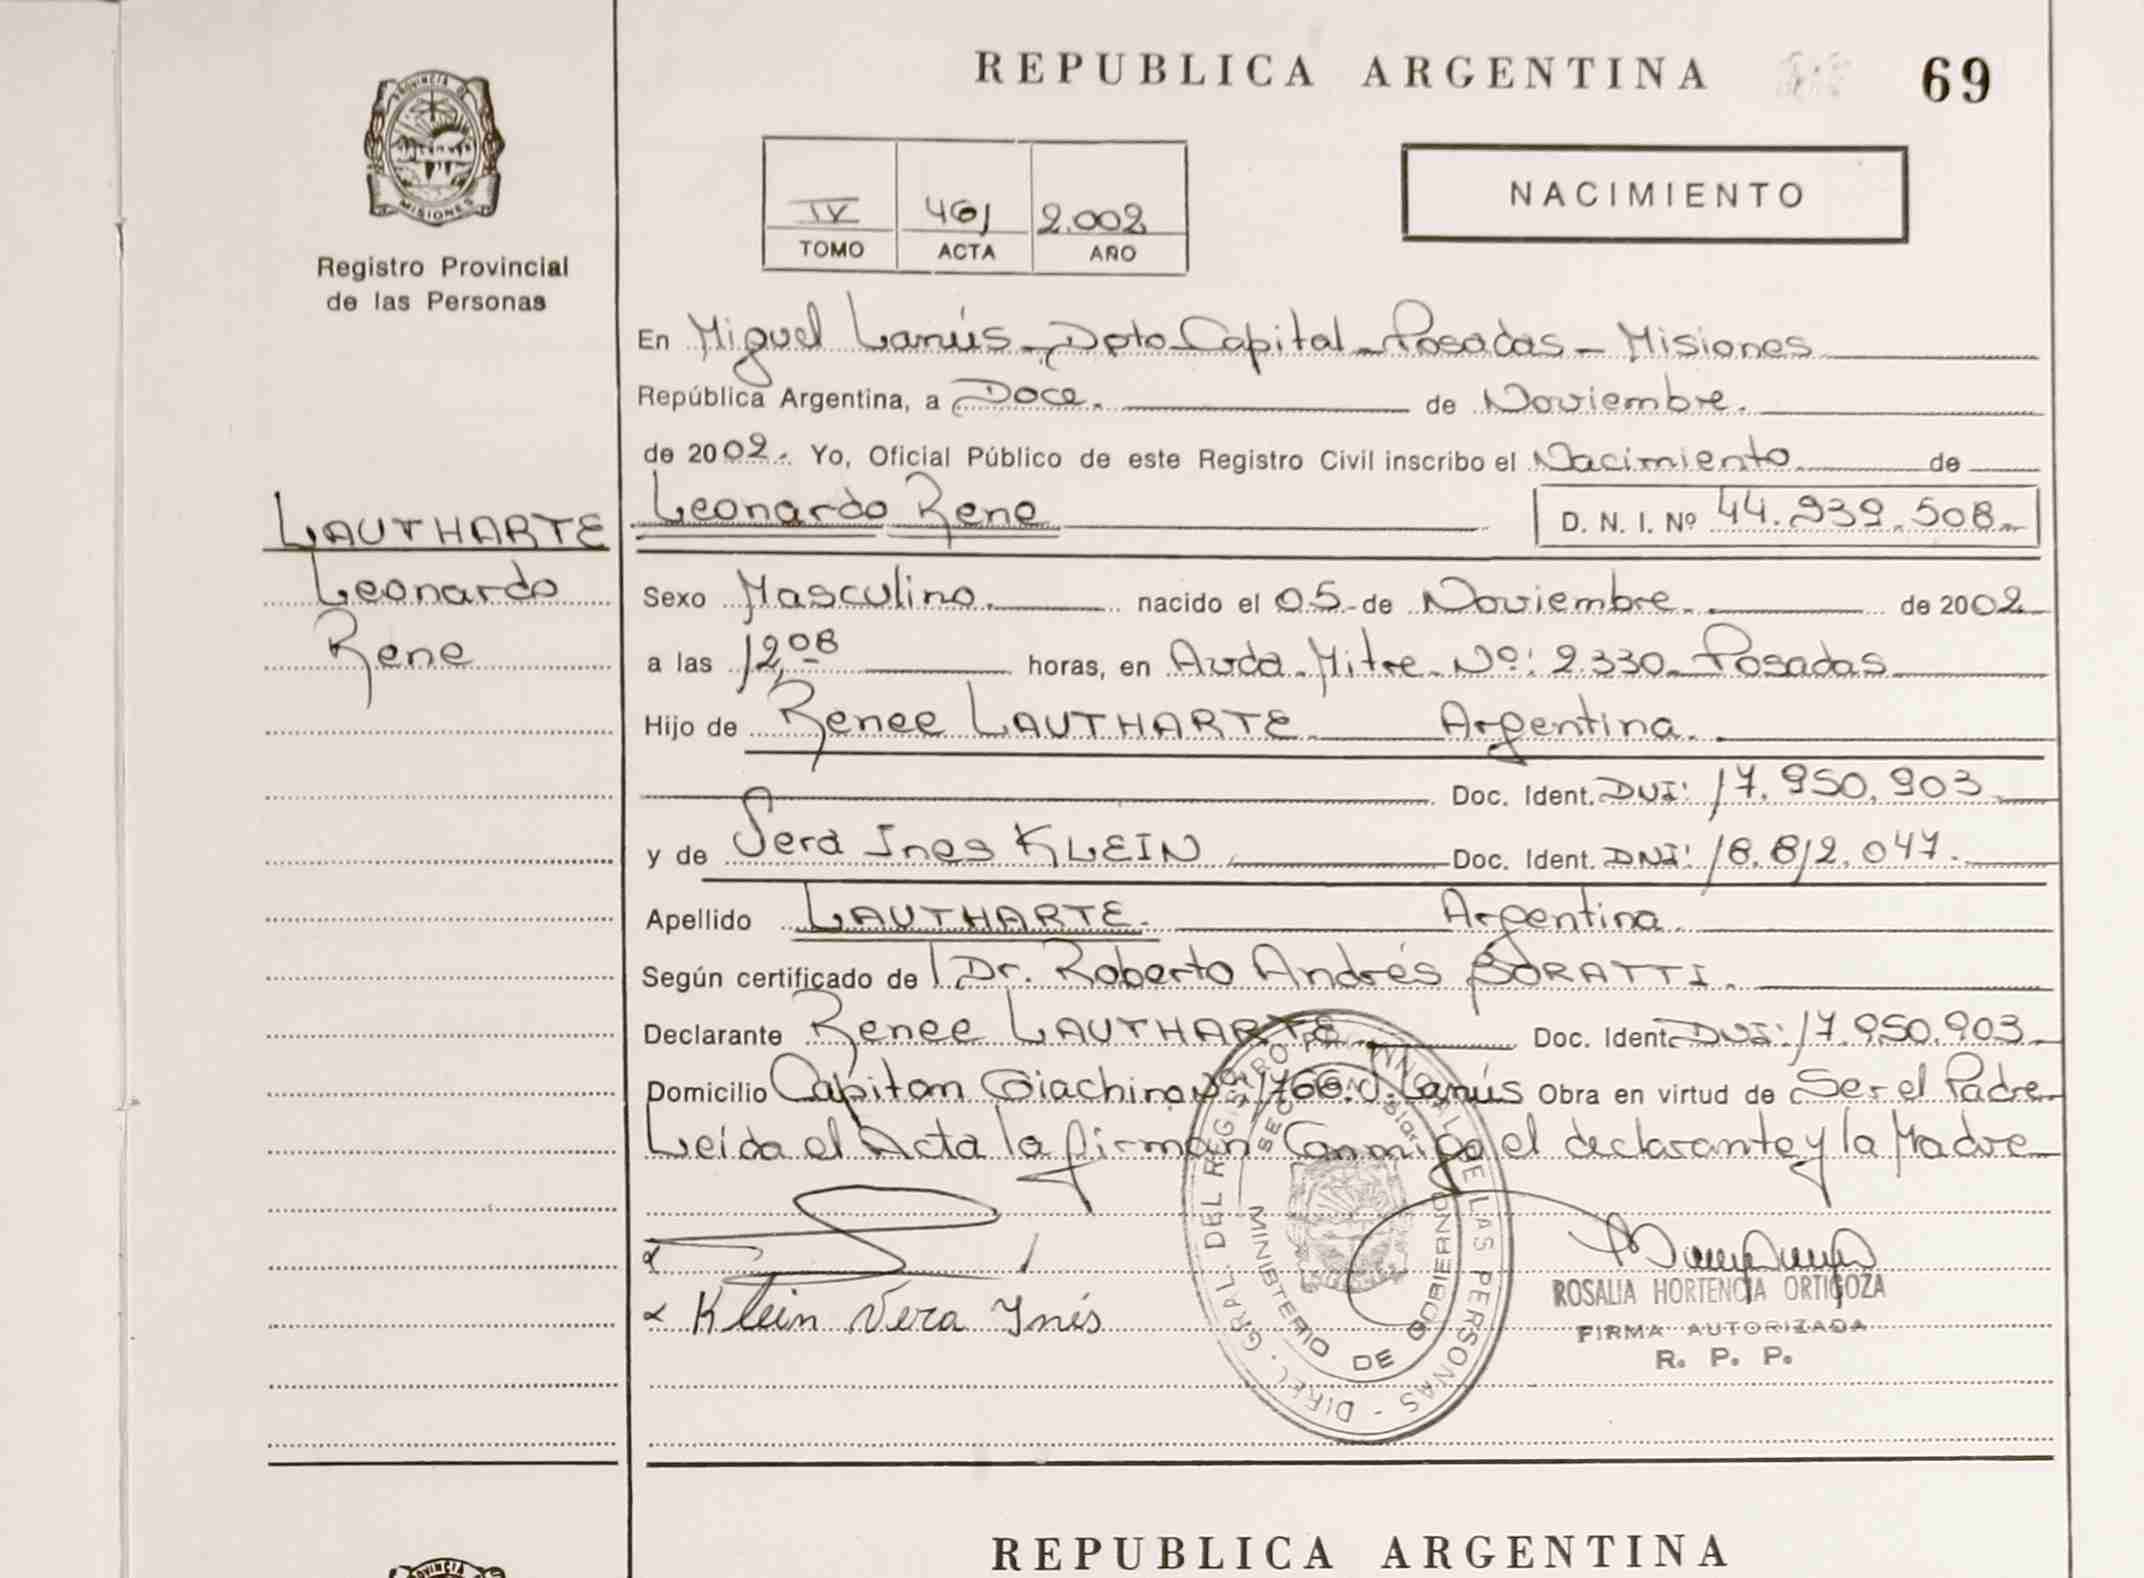 REPUBLICA ARGENTINA
69
PROVINCIA DE
MISIONES
Registro Provincial
de las Personas
IV 461 2.002
TOMO ACTA AÑO
NACIMIENTO
En Miguel Lanús - Dpto Capital - Posadas - Misiones
República Argentina, a Doce. de Noviembre.
de 2002. Yo, Oficial Público de este Registro Civil inscribo el Nacimiento de
LAUTHARTE
Leonardo
Rene
Leonardo Rene D. N. I. Nº 44.939.508.
Sexo Masculino. nacido el 05 de Noviembre. de 2002
a las 12,08 horas, en Avda. Mitre Nº: 2.330 - Posadas
Hijo de Renee LAUTHARTE. Argentina.
Doc. Ident. DNI: 17.950.903
y de Vera Ines KLEIN Doc. Ident. DNI: 18.812.047.
Apellido LAUTHARTE. Argentina.
Según certificado de Dr. Roberto Andrés BORATTI.
Declarante Renee LAUTHARTE Doc. Ident. DNI: 17.950.903
Domicilio Capitan Giachino Nº 1766. Lanús Obra en virtud de Ser el Padre
Leída el Acta la firman Conmigo el declarante y la Madre
Klein Vera Ynés
DIREC. GRAL. DEL REGISTRO PROVINCIAL DE LAS PERSONAS -
MINISTERIO DE GOBIERNO
ROSALIA HORTENCIA ORTIGOZA
FIRMA AUTORIZADA
R. P. P.
REPUBLICA ARGENTINA
PROVINCIA